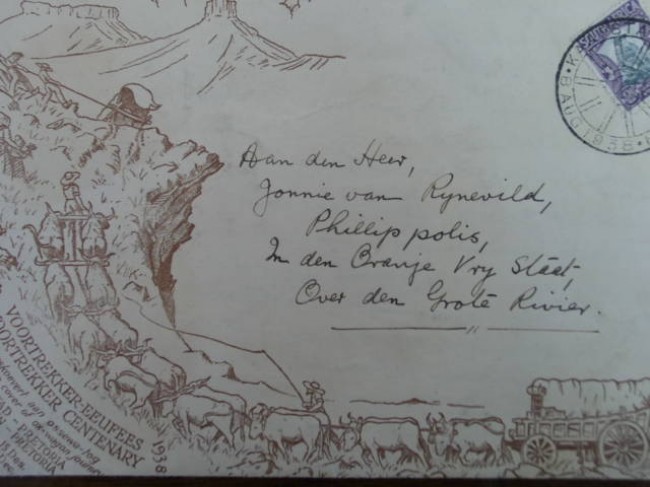 Aan den Heer,
Jonnie van Rynevild,
Phillippolis,
In den Oranje Vry Staat,
Over den Grote Rivier.
VOORTREKKER-EEUFEES
VOORTREKKER CENTENARY
1938
PRETORIA
PRETORIA
8 AUG 1938